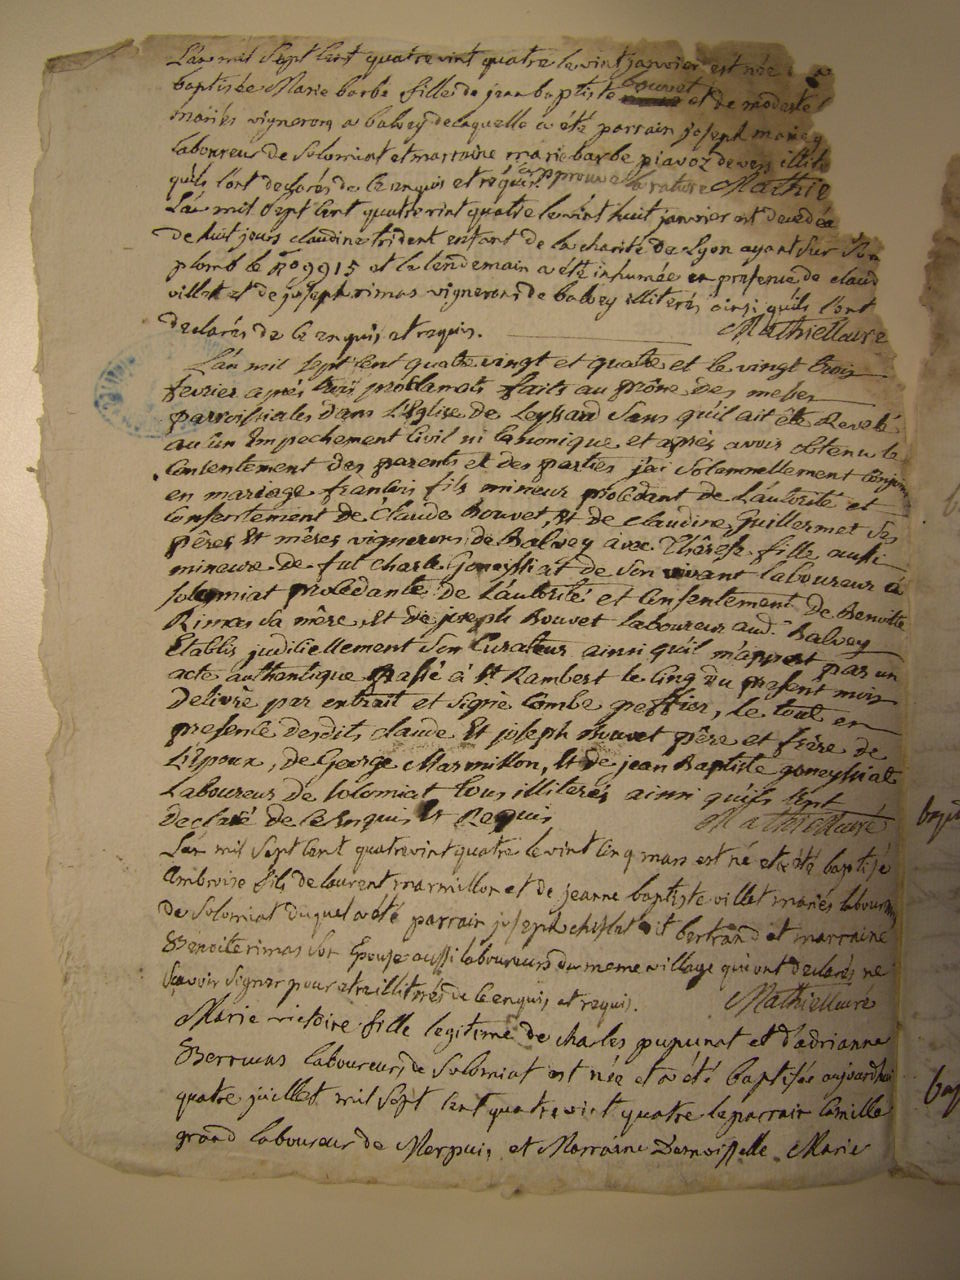 L'an mil Sept Cent quatre vint quatre le vint janvier est née
baptisée Marie barbe fille de jean baptiste bouvet et de modeste
mariés vignerons a balvey de laquelle a été parrain joseph
laboureur de Solomiat et marraine marie barbe piavoz
quils l'ont declarés de ce enquis et requis. approuvé la rature Mathie
L'an mil Sept Cent quatre vint quatre le vint huit janvier est decedée
de huit jours claudine trident enfant de la charité de Lyon ayant Sur Son
plomb le no 9915 et le lendemain a été inhumée en presence de claud
villet et de joseph rimas vignerons de balvey illiterés ainsi quils l'ont
declarés de ce enquis et requis. Mathieu Curé
L'an mil Sept Cent quatre vingt et quatre et le vingt trois
fevrier après trois proclamats faits au prône des messes
parroissiales dans L'Eglise de Leyssard Sans qu'il ait été Revelé
aucun Empechement Civil ni Canonique et après avoir obtenu le
Consentement des parents et des parties j'ai Solemnellement Conjoint
en mariage françois fils mineur procédant de L'autorité et
Consentement de Claude Bouvet, Et de Claudine Guillermet Ses
pères Et mères vignerons de Balvey avec Thérèse fille aussi
mineure de fut Charle Goneyssiat de Son vivant laboureur à
Solomiat procédante de L'autorité et Consentement de Benoitte
Rimas Sa mère, Et de joseph Bouvet laboureur aud. Balvey
Etablis judiciellement Son Curateur ainsi qu'il m'appert par un
acte authantique passé à St Rambert le Cinq du présent mois
Délivré par extrait et Signé Combe greffier, Le tout en
présence desdits claude Et joseph Bouvet père et frère de
L'Epoux, de George Marmillon, Et de jean Baptiste goneyssiat
Laboureurs de Solomiat tous illiterés ainsi qu'ils l'ont
declaré de ce Enquis Et Requis Mathieu Curé
L'an mil Sept Cent quatre vint quatre le vint Cinq mars est né et a été baptisé
Ambroise fils de laurent marmillon et de jeanne baptiste villet mariés laboureurs
de Solomiat duquel a été parrain joseph dit bertrand et marraine
Benoite rimas Son Epouse aussi laboureurs du meme village qui ont declarés ne
Scavoir Signer pour etre illiterés de ce enquis et requis. Mathieu Curé
Marie victoire fille legitime de charles pupunat et d'adrianne
laboureurs de Solomiat est née et a été baptisée aujourdhui
quatre juillet mil Sept Cent quatre vint quatre le parrain Camille
grand laboureur de Merpuis et Marraine Demoiselle Marie